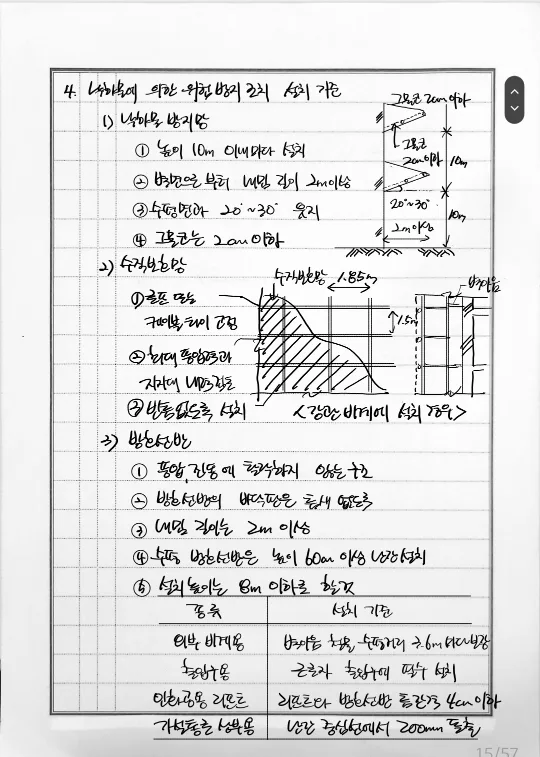 4. 낙하물에 의한 위험방지 조치 설치 기준
1) 낙하물 방지망
① 높이 10m 이내마다 설치
② 벽면으로부터 내민 길이 2m이상
③ 수평면과 20°~30° 유지
④ 그물코는 2cm 이하
그물코 2cm 이하
그물코
2cm이하
10m
20°~30°
2m이상
10m
2) 수직보호망
① 로프 또는
케이블 타이 고정
② 최대 풍압력과
지지대 내력검토
③ 빈틈없도록 설치
수직보호망
1.85m
1.5m
벽이음
<강관 비계에 설치 경우>
3) 방호선반
① 풍압, 진동에 탈락하지 않는 구조
② 방호선반의 바닥판은 틈새 없도록
③ 내민 길이는 2m 이상
④ 수평 방호선반은 높이 60cm 이상 난간 설치
⑤ 설치높이는 8m 이하로 할것
종류 설치 기준
외부 비계용 벽이음 철물 수평거리 3.6m 마다 보강
출입구용 근로자 출입구에 필수 설치
인화공용 리프트 리프트와 방호선반 틈간격 4cm 이하
가설통로 상부용 난간 중심선에서 200mm 돌출
15/57